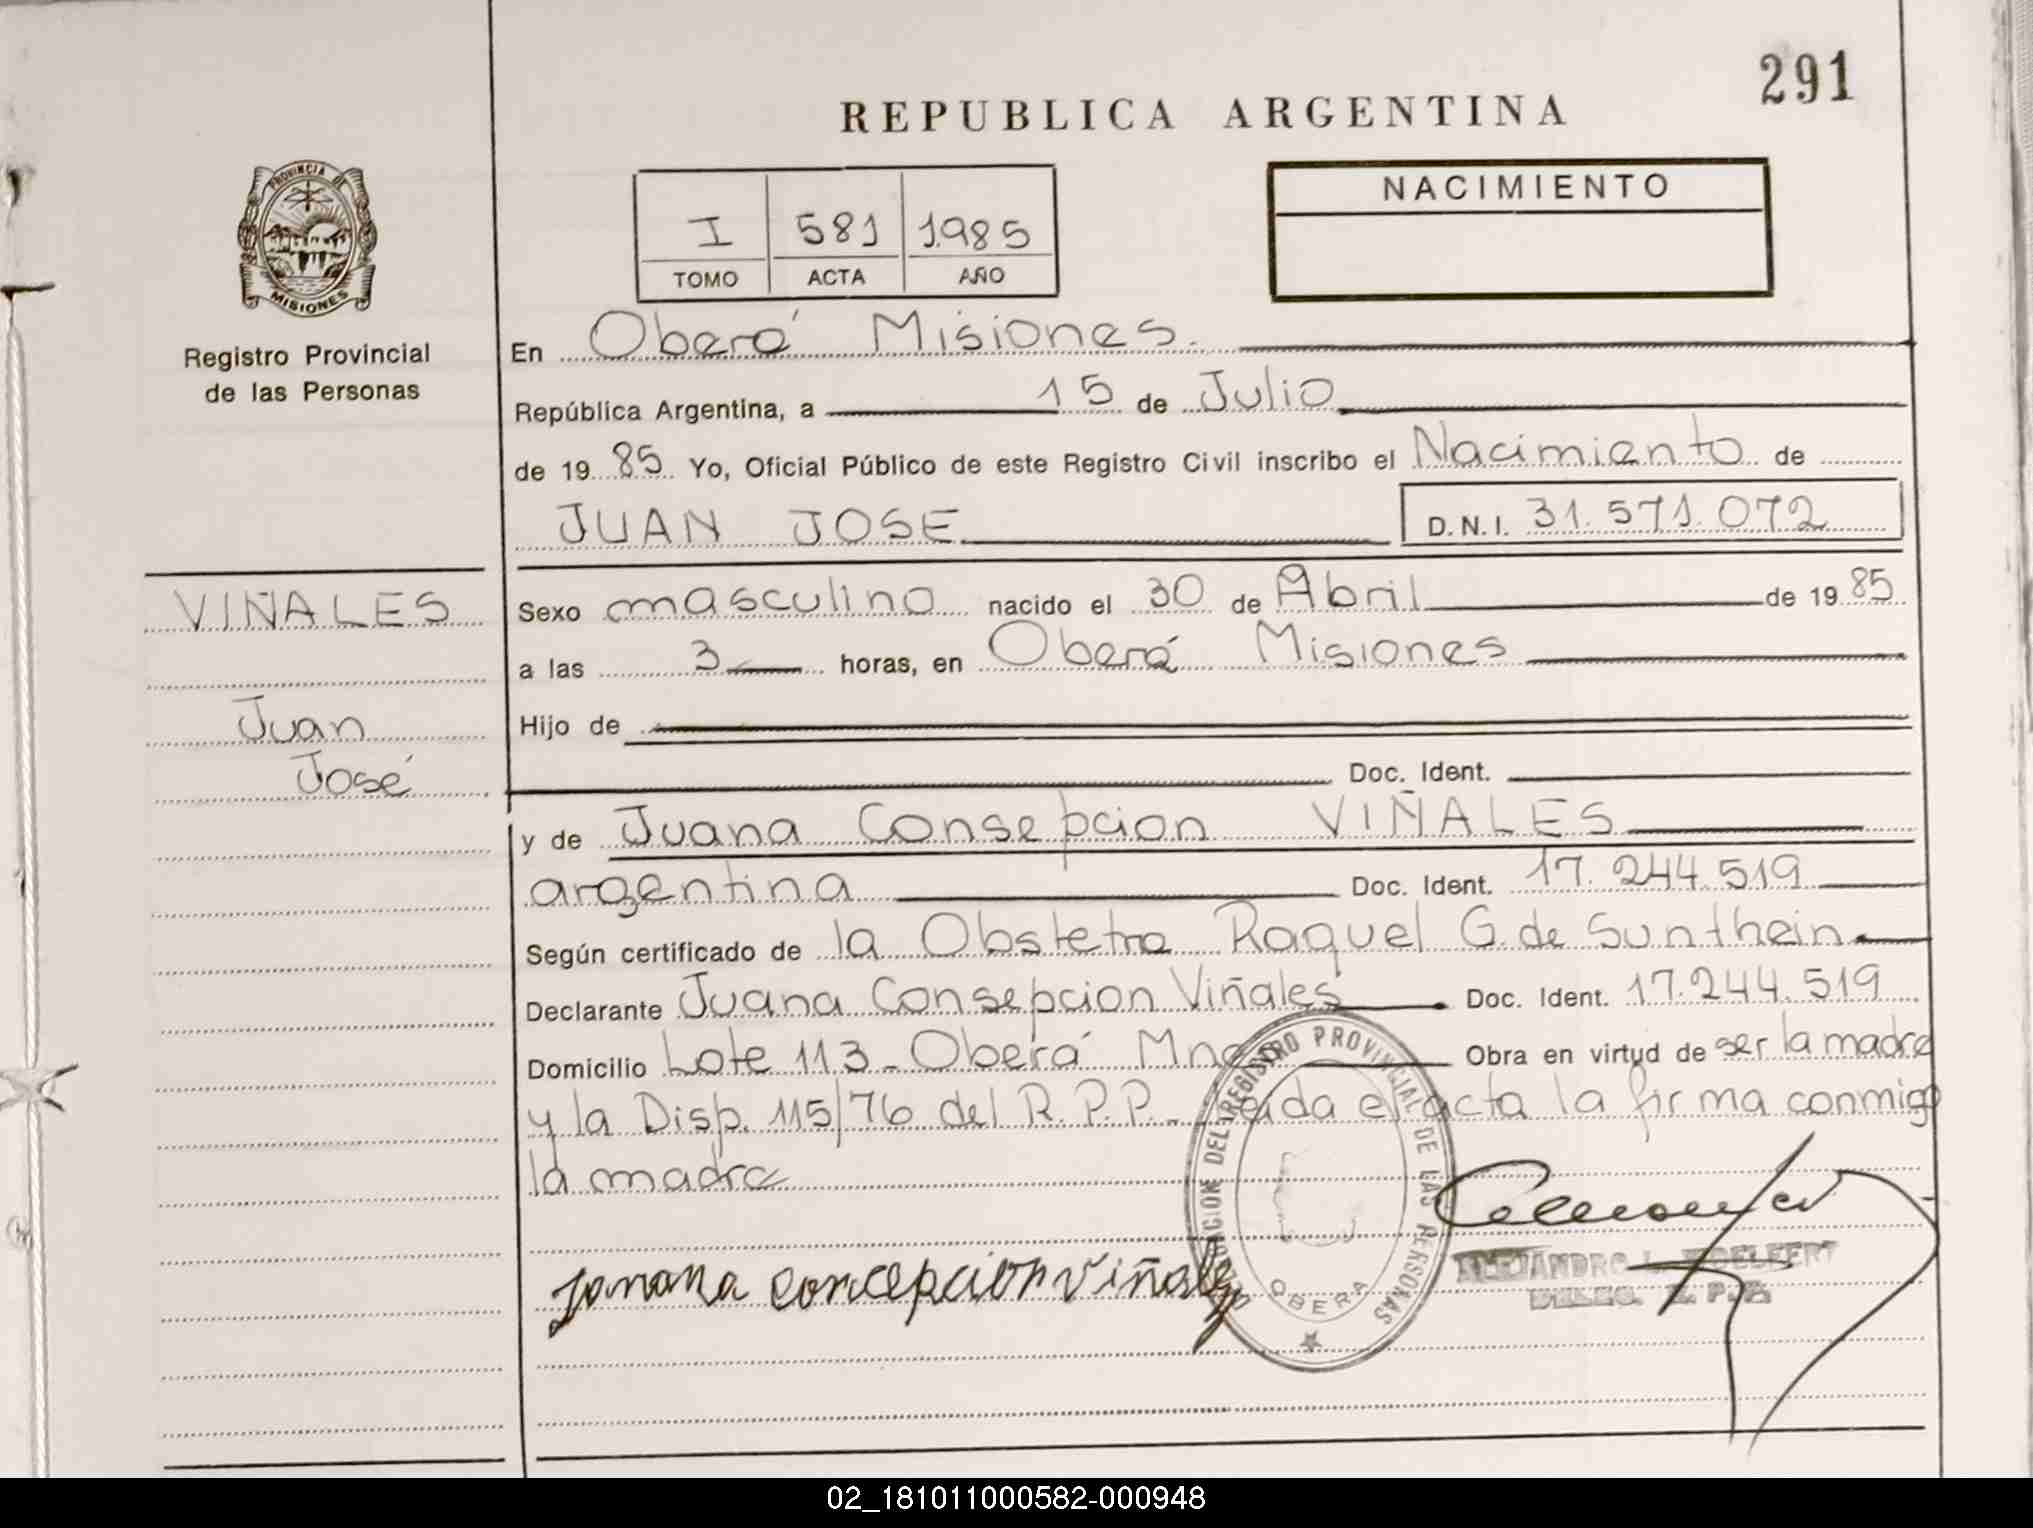 291
REPUBLICA ARGENTINA
PROVINCIA DE
MISIONES
Registro Provincial
de las Personas
I 581 1985
TOMO ACTA AÑO
NACIMIENTO
En Oberá Misiones.
República Argentina, a 15 de Julio
de 19 85 Yo, Oficial Público de este Registro Civil inscribo el Nacimiento de
JUAN JOSE D.N.I. 31.571.072
VIÑALES
Juan
José
Sexo masculino nacido el 30 de Abril de 19 85
a las 3 horas, en Oberá Misiones
Hijo de
Doc. Ident.
y de Juana Consepcion VIÑALES
argentina Doc. Ident. 17.244.519
Según certificado de la Obstetra Raquel G. de Sunthein
Declarante Juana Consepcion Viñales Doc. Ident. 17.244.519
Domicilio Lote 113 - Oberá Mnes Obra en virtud de ser la madre
y la Disp. 115/76 del R.P.P. - Leida el acta la firma conmigo
la madre
DEL REGISTRO PROVINCIAL DE LAS PERSONAS
OBERA
Juana concepcion viñales
02_181011000582-000948